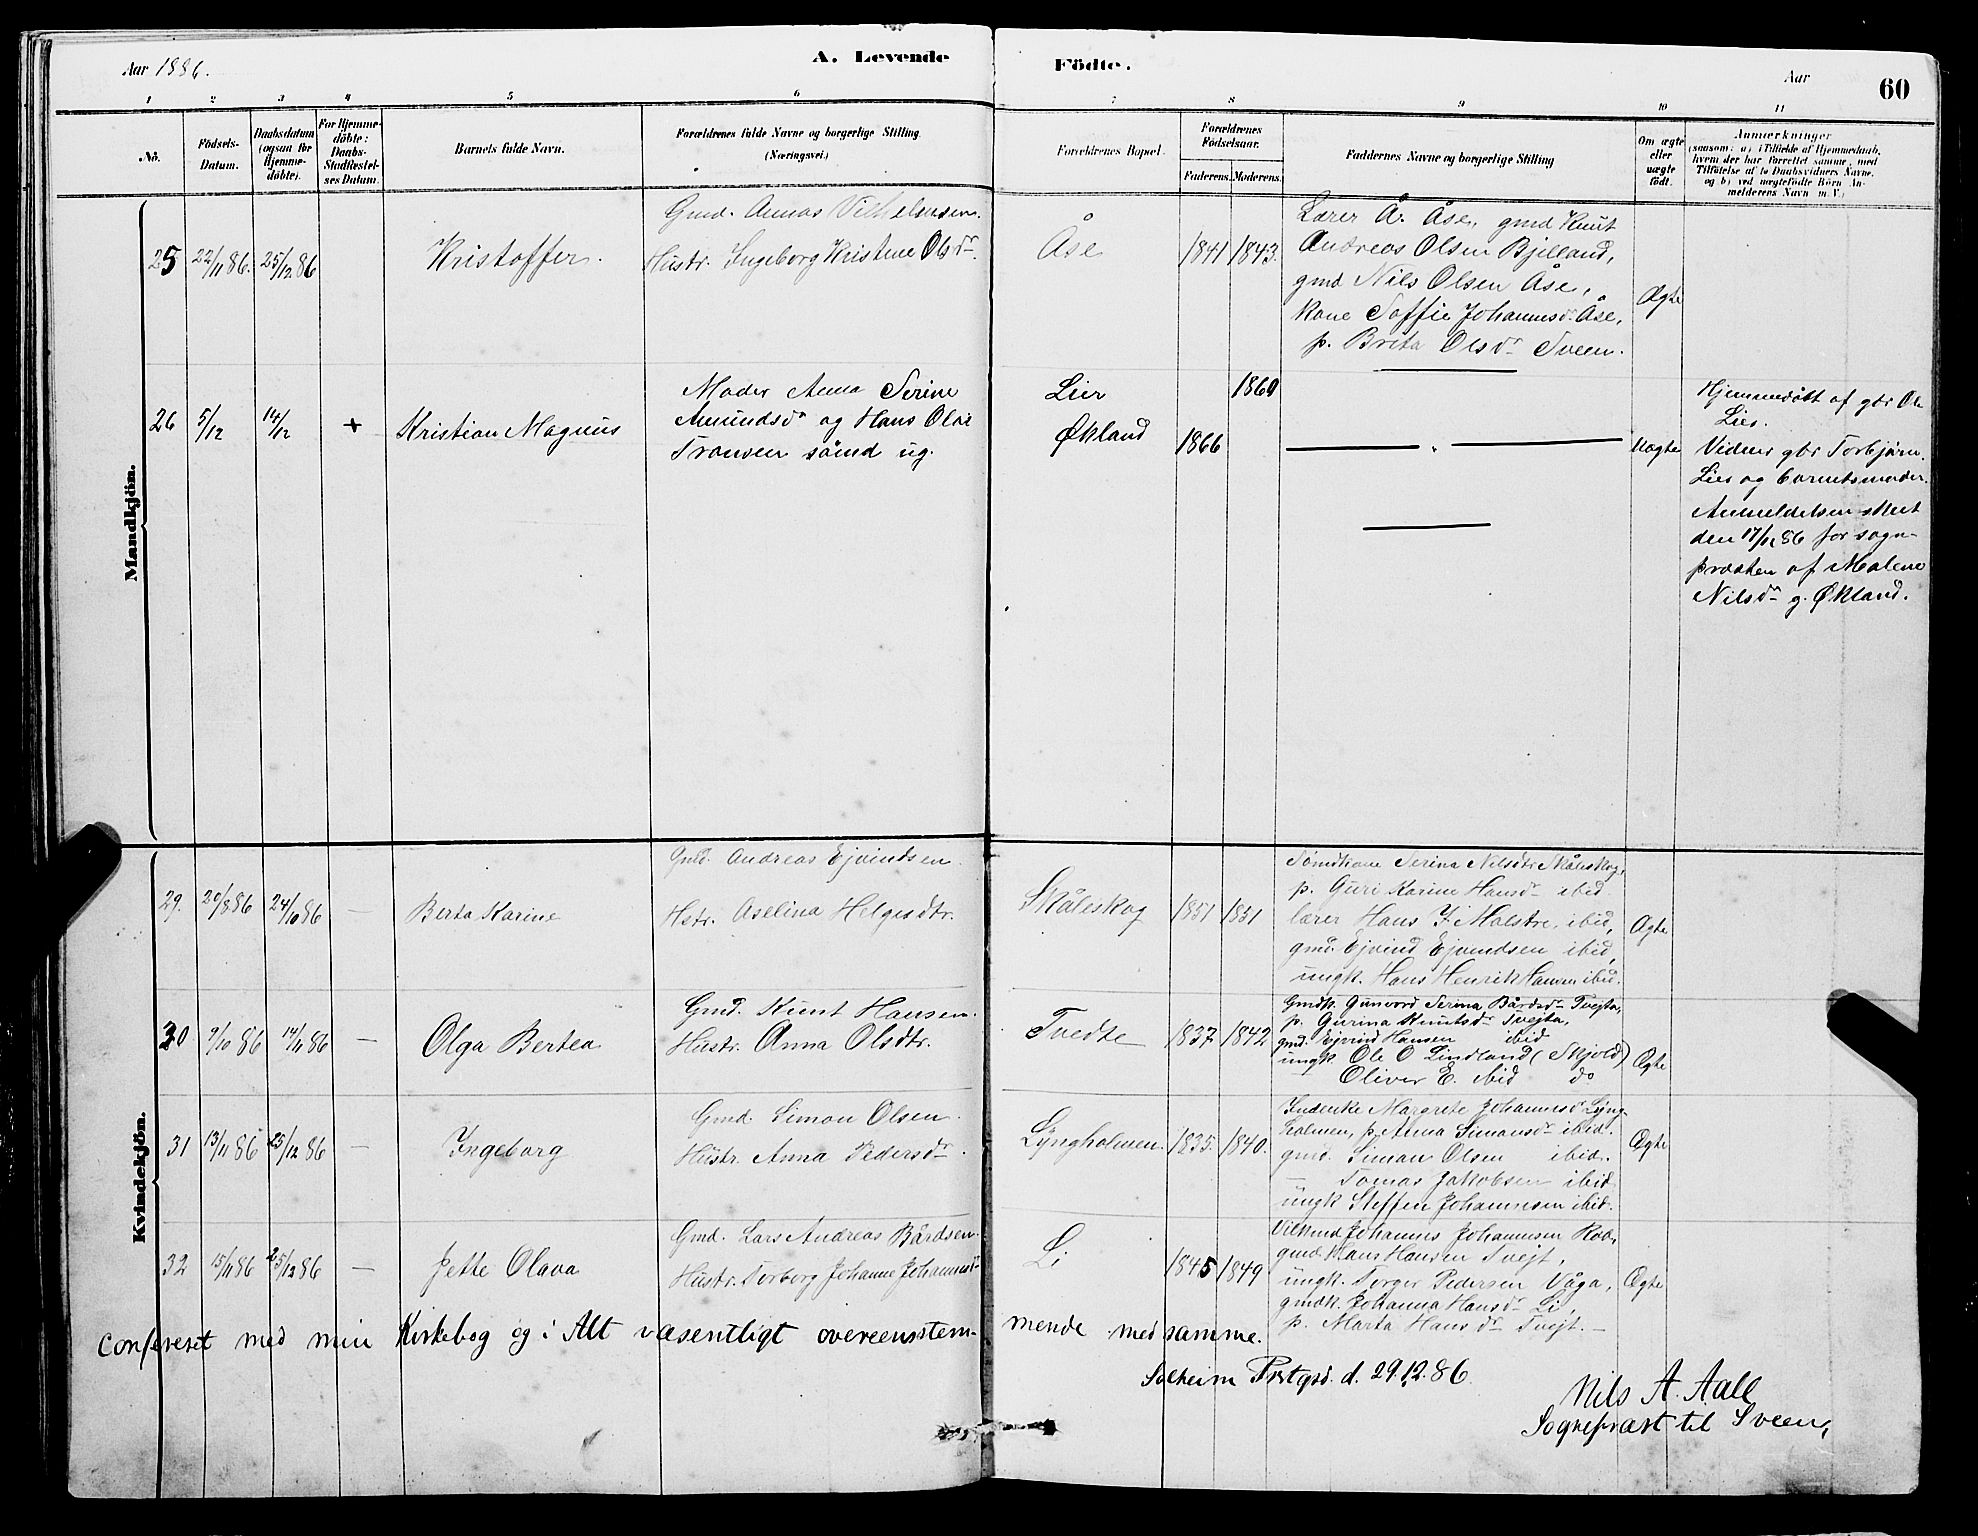 Aar 1886.
A. Levende
Födte.
Aar
60
1 2 3 4 5 6 7 8 9 10 11
No.
Födsels-Datum.
Daabsdatum (ogsaa for Hjemme-döbte).
For Hjemme-döbte: Daabs-Stadfæstel-ses Datum.
Barnets fulde Navn.
Forældrenes fulde Navne og borgerlige Stilling.
(Næringsvei.)
Forældrenes Bopæl.
Forældrenes Födselsaar.
Faderens. Moderens.
Faddernes Navne og borgerlige Stilling
Om ægte eller uægte født.
Anmærkninger
(saasom: a) i Tilfælde af Hjemmedaab,
hvem der har forrettet samme, med
Tilföielse af to Daabsvidners Navne,
og b) ved uægtefödte Börn An-
melderens Navn m. V.)
Mandkjön.
25 22/11 86. 25/12 86 Kristoffer.
Gmd. Annas Vilhelmsen.
Hustr. Ingeborg Kristene Olsdr.
Åse 1841 1843.
Lærer A. Åse, gmd Knut
Andreas Olsen Bjelland,
gmd Nils Olsen Åse,
kone Soffie Johannesdr. Åse,
p. Brita Olsdr Sveen.
Ægte
26 5/12 14/12 + Kristian Magnus
Moder Anna Serine
Amundsdr og Hans Olai
Tronsen sömd ug.
Lier 1860
Økland 1866
Uægte
Hjemmedöbt af gbr Ole
Lier.
Vidner gbr Torbjörn
Lier og barnetsmoder.
Anmeldelsen skeet
den 17/12 86 for sogne-
præsten af Malene
Nilsdr g. Økland.
Kvindekjön.
29. 20/8 86 24/10 86 — Berta Karine
Gmd. Andreas Ejvindsen.
Hstr. Aselina Helgesdtr.
Skåleskog 1851 1851
Sömdkone Serina Nilsdtr Skåleskog,
p. Guri Karine Hansdr ibid
lærer Hans J. Malstre, ibid,
gmd. Ejvind Ejvindsen ibid,
ungk. Hans Henrik Hansen ibid.
Ægte
30 9/10 86 14/11 86 — Olga Bertea
Gmd. Knut Hansen.
Hustr. Anna Olsdtr.
Tvedte 1837 1842
Gmdk. Gunvord Serina Bårdsdr Tvejta,
p. Gurina Knutsdr Tvejta,
gmd. Ejvind Hansen ibid
ungk. Ole O Lindland (Skjold)
Oliver E. ibid do
Ægte
31 13/11 86 25/12 86 — Ingeborg
Gmd. Simon Olsen.
Hustr. Anna Pedersdr.
Lyngholmen. 1835. 1840.
Inderke Margrete Johannesdr Lyng-
holmen, p. Anna Simonsdr ibid.
gmd. Simon Olsen ibid.
— Tomas Jakobsen ibid
ungk Steffen Johannesen ibid.
Ægte
32 15/11 86 25/12 86 — Jette Olava
Gmd. Lars Andreas Bårdsen.
Hustr. Torborg Johanne Johannesdr
Li 1845 1849
Johannes Johannesen
gmd Hans Hansen Tvejt,
ungk. Torger Pedersen Våga,
gmdk. Johanna Hansdr Li,
p. Marta Hansdr Tvejt. —
Ægte
Confereret med min Kirkebog og i Alt væsentligt overeensstem-
mende med samme.
Solheim Prstgrd. d. 29.12.86.
Nils A. Aall
Sognepræst til Sveen.